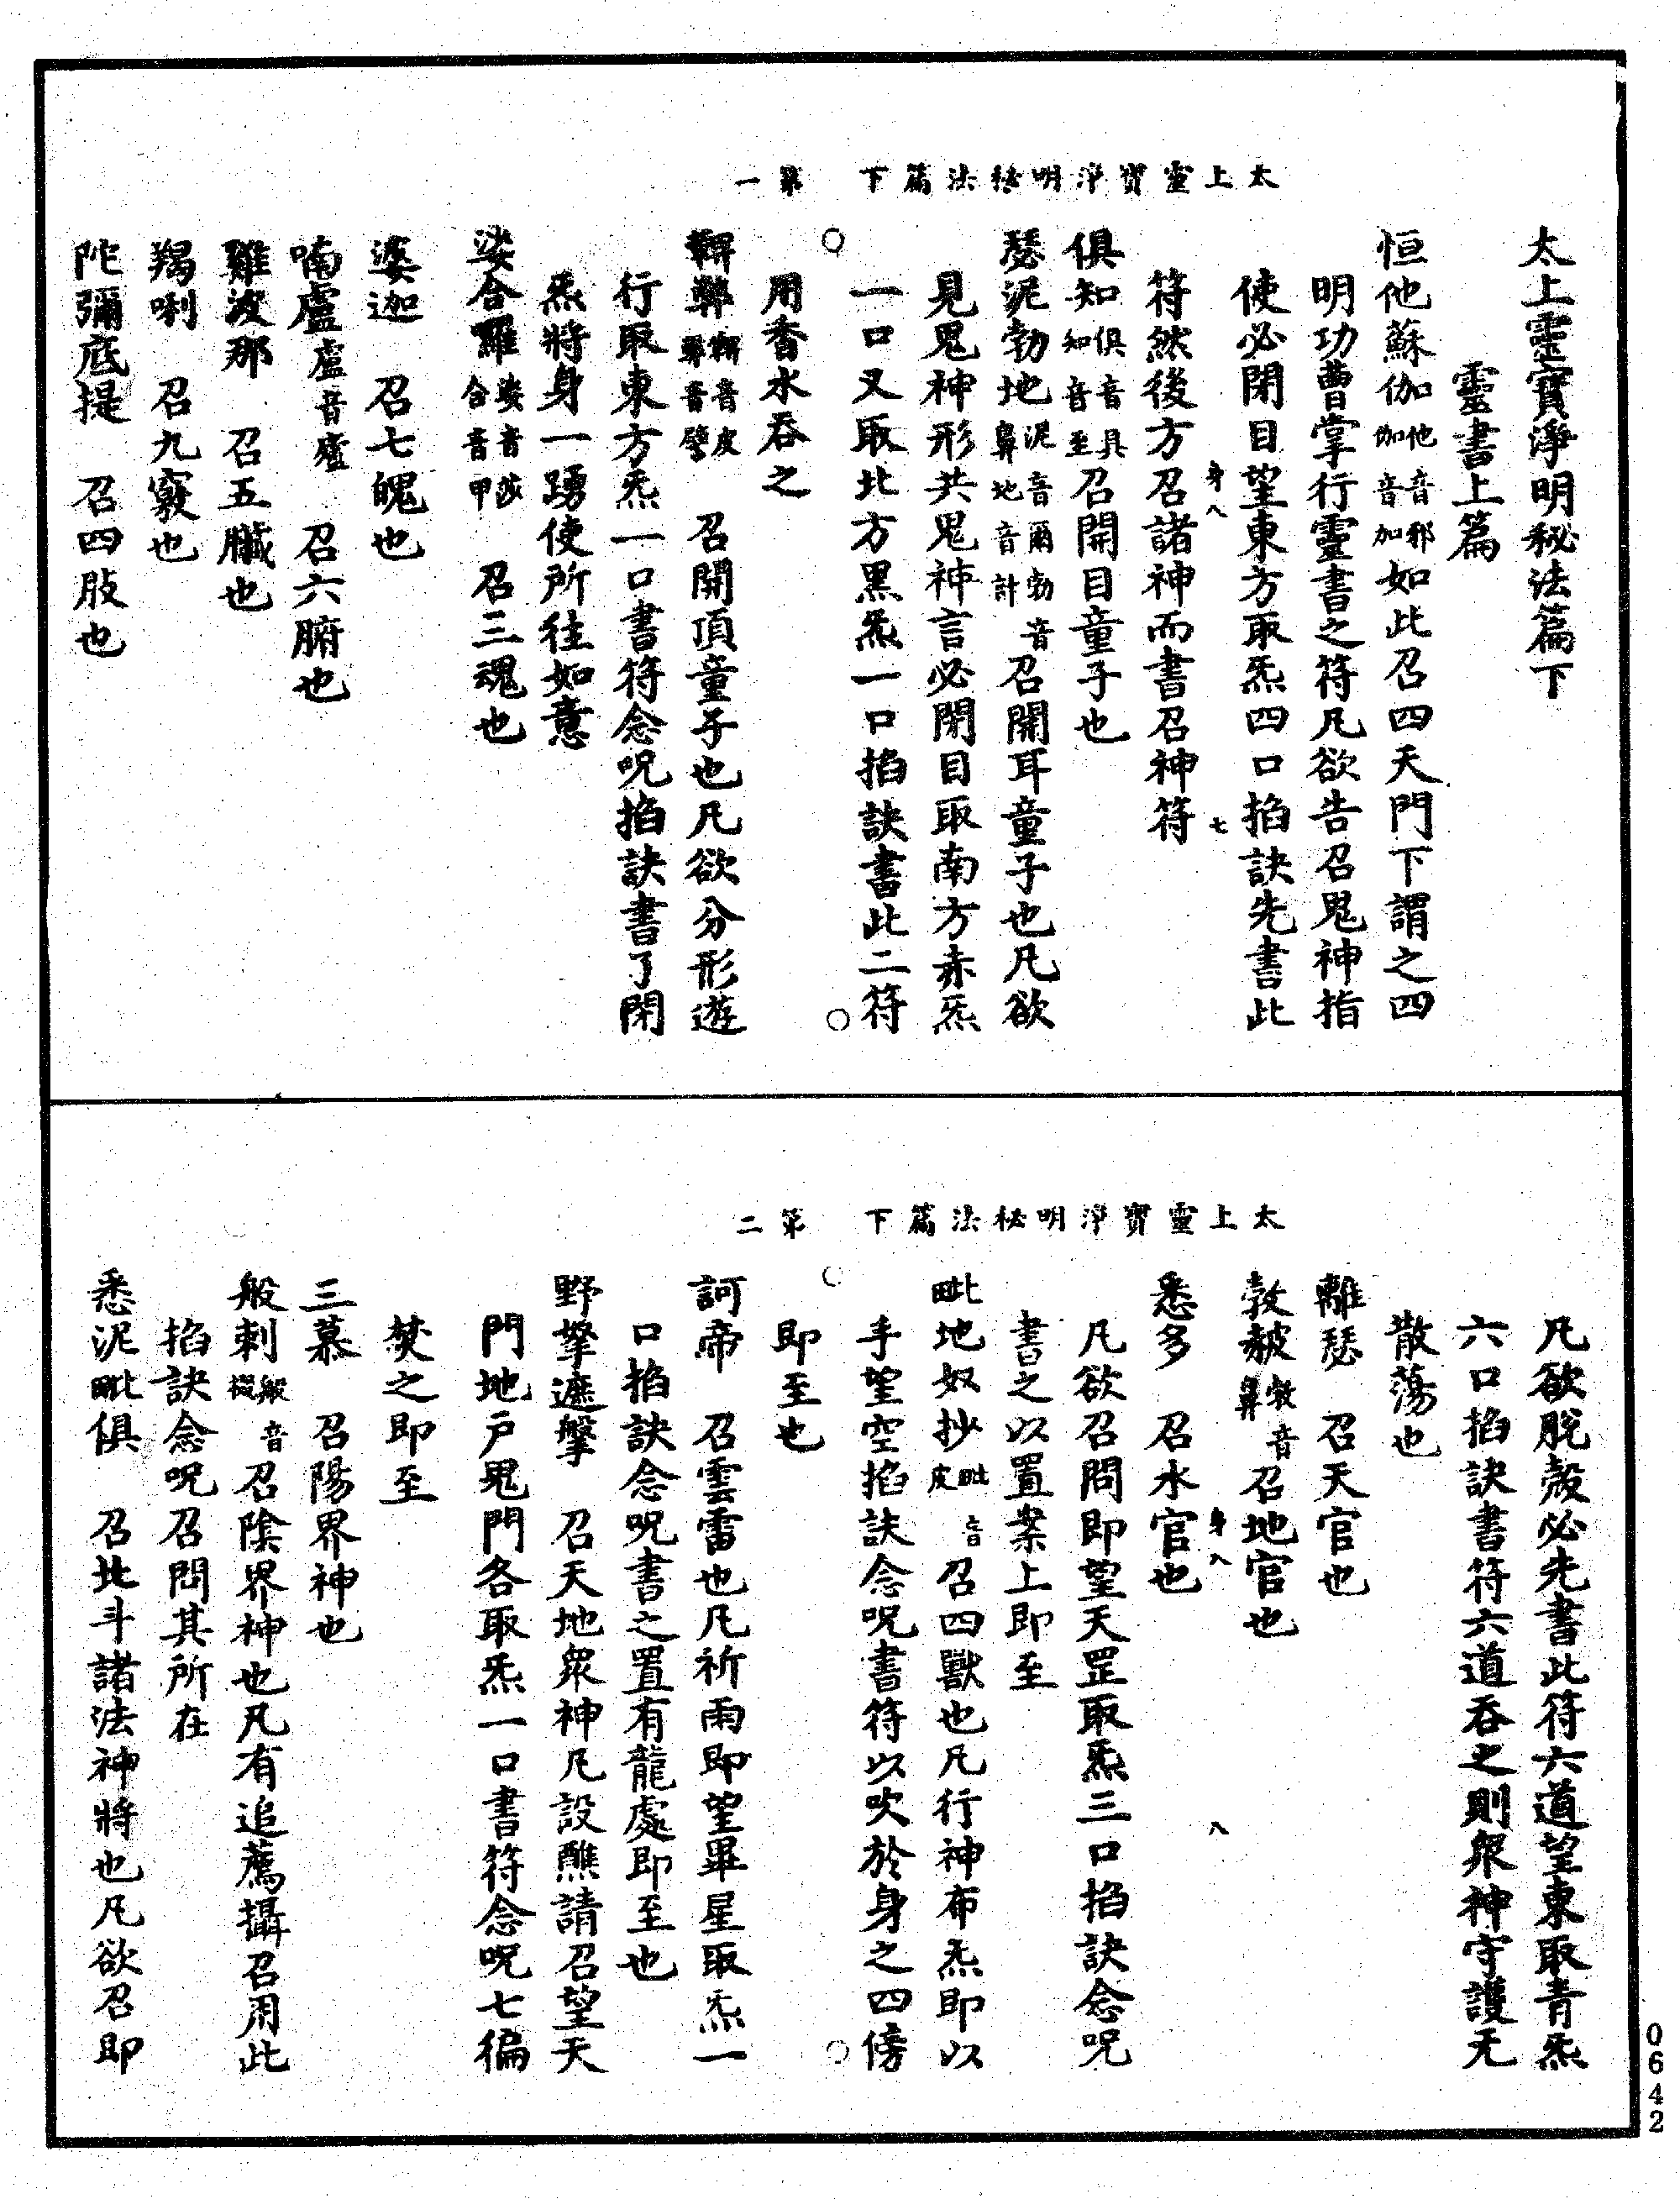 太上靈寳淨明秘法篇下　第一
太上靈寳淨明秘法篇下
靈書上篇
恒他蘇伽他音邪伽音加如此召四天門下謂之四
明功曹掌行靈書之符凡欲告召鬼神指
使必閉目望東方取炁四口掐訣先書此
身八　七
符然後方召諸神而書召神符
俱知俱音具知音至召開目童子也
瑟泥勃地泥音爾勃音鼻地音計召開耳童子也凡欲
見鬼神形共鬼神言必閉目取南方赤炁
一口又取北方黑炁一口掐訣書此二符
用香水吞之
召開頂童子也凡欲分形遊
行取東方炁一口書符念呪掐訣書了閉
炁將身一踴使所往如意
娑合羅娑音莎合音甲　召三魂也
婆迦　召七魄也
喃盧盧音廬　召六腑也
難波那　召五臟也
羯唎　召九竅也
陀彌底提　召四肢也
太上靈寳淨明秘法篇下　第二
凡欲脫殼必先書此符六道望東取青炁
六口掐訣書符六道吞之則衆神守護无
散蕩也
離瑟　召天官也
召地官也
身八　八
悉多　召水官也
凡欲召問即望天罡取炁三口掐訣念呪
書之以置案上即至
毗地奴抄毗音皮召四獸也凡行神布炁即以
手望空掐訣念呪書符以吹於身之四傍
即至也
訶帝　召雲雷也凡祈雨即望畢星取炁一
口掐訣念呪書之置有龍處即至也
野拏遮拏　召天地衆神凡設醮請召望天
門地戶鬼門各取炁一口書符念呪七徧
焚之即至
三慕　召陽界神也
般刺般音椴召陰界神也凡有追薦攝召用此
掐訣念呪召問其所在
悉泥毗俱　召北斗諸法神將也凡欲召即
0642